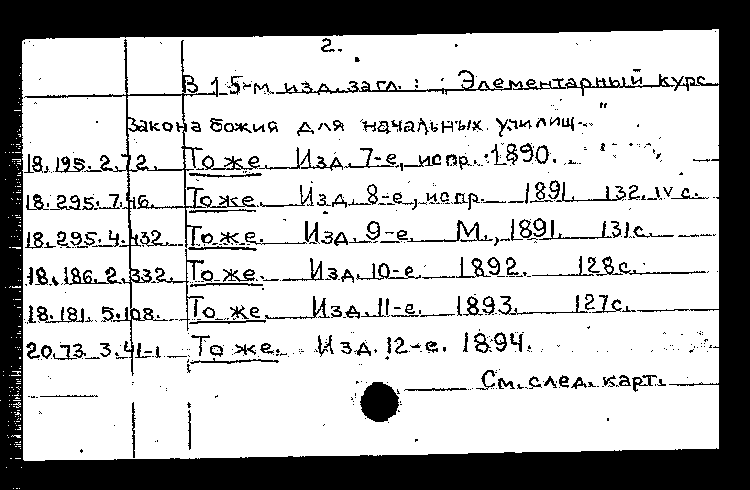 2.
В 15-м изд. загл.: „Элементарный курс
Закона божия для начальных училищ."
18.195.2.72. То же. Изд. 7-е, испр. 1890.
18.295.7.46. То же. Изд. 8-е, испр. 1891. 132. IV с.
18.295.4.432. То же. Изд. 9-е. М., 1891. 131 с.
18.186.2.332. То же. Изд. 10-е. 1892. 128 с.
18.181.5.108. То же. Изд. 11-е. 1893. 127 с.
20.73.3.41-1 То же. Изд. 12-е. 1894.
См. след. карт.